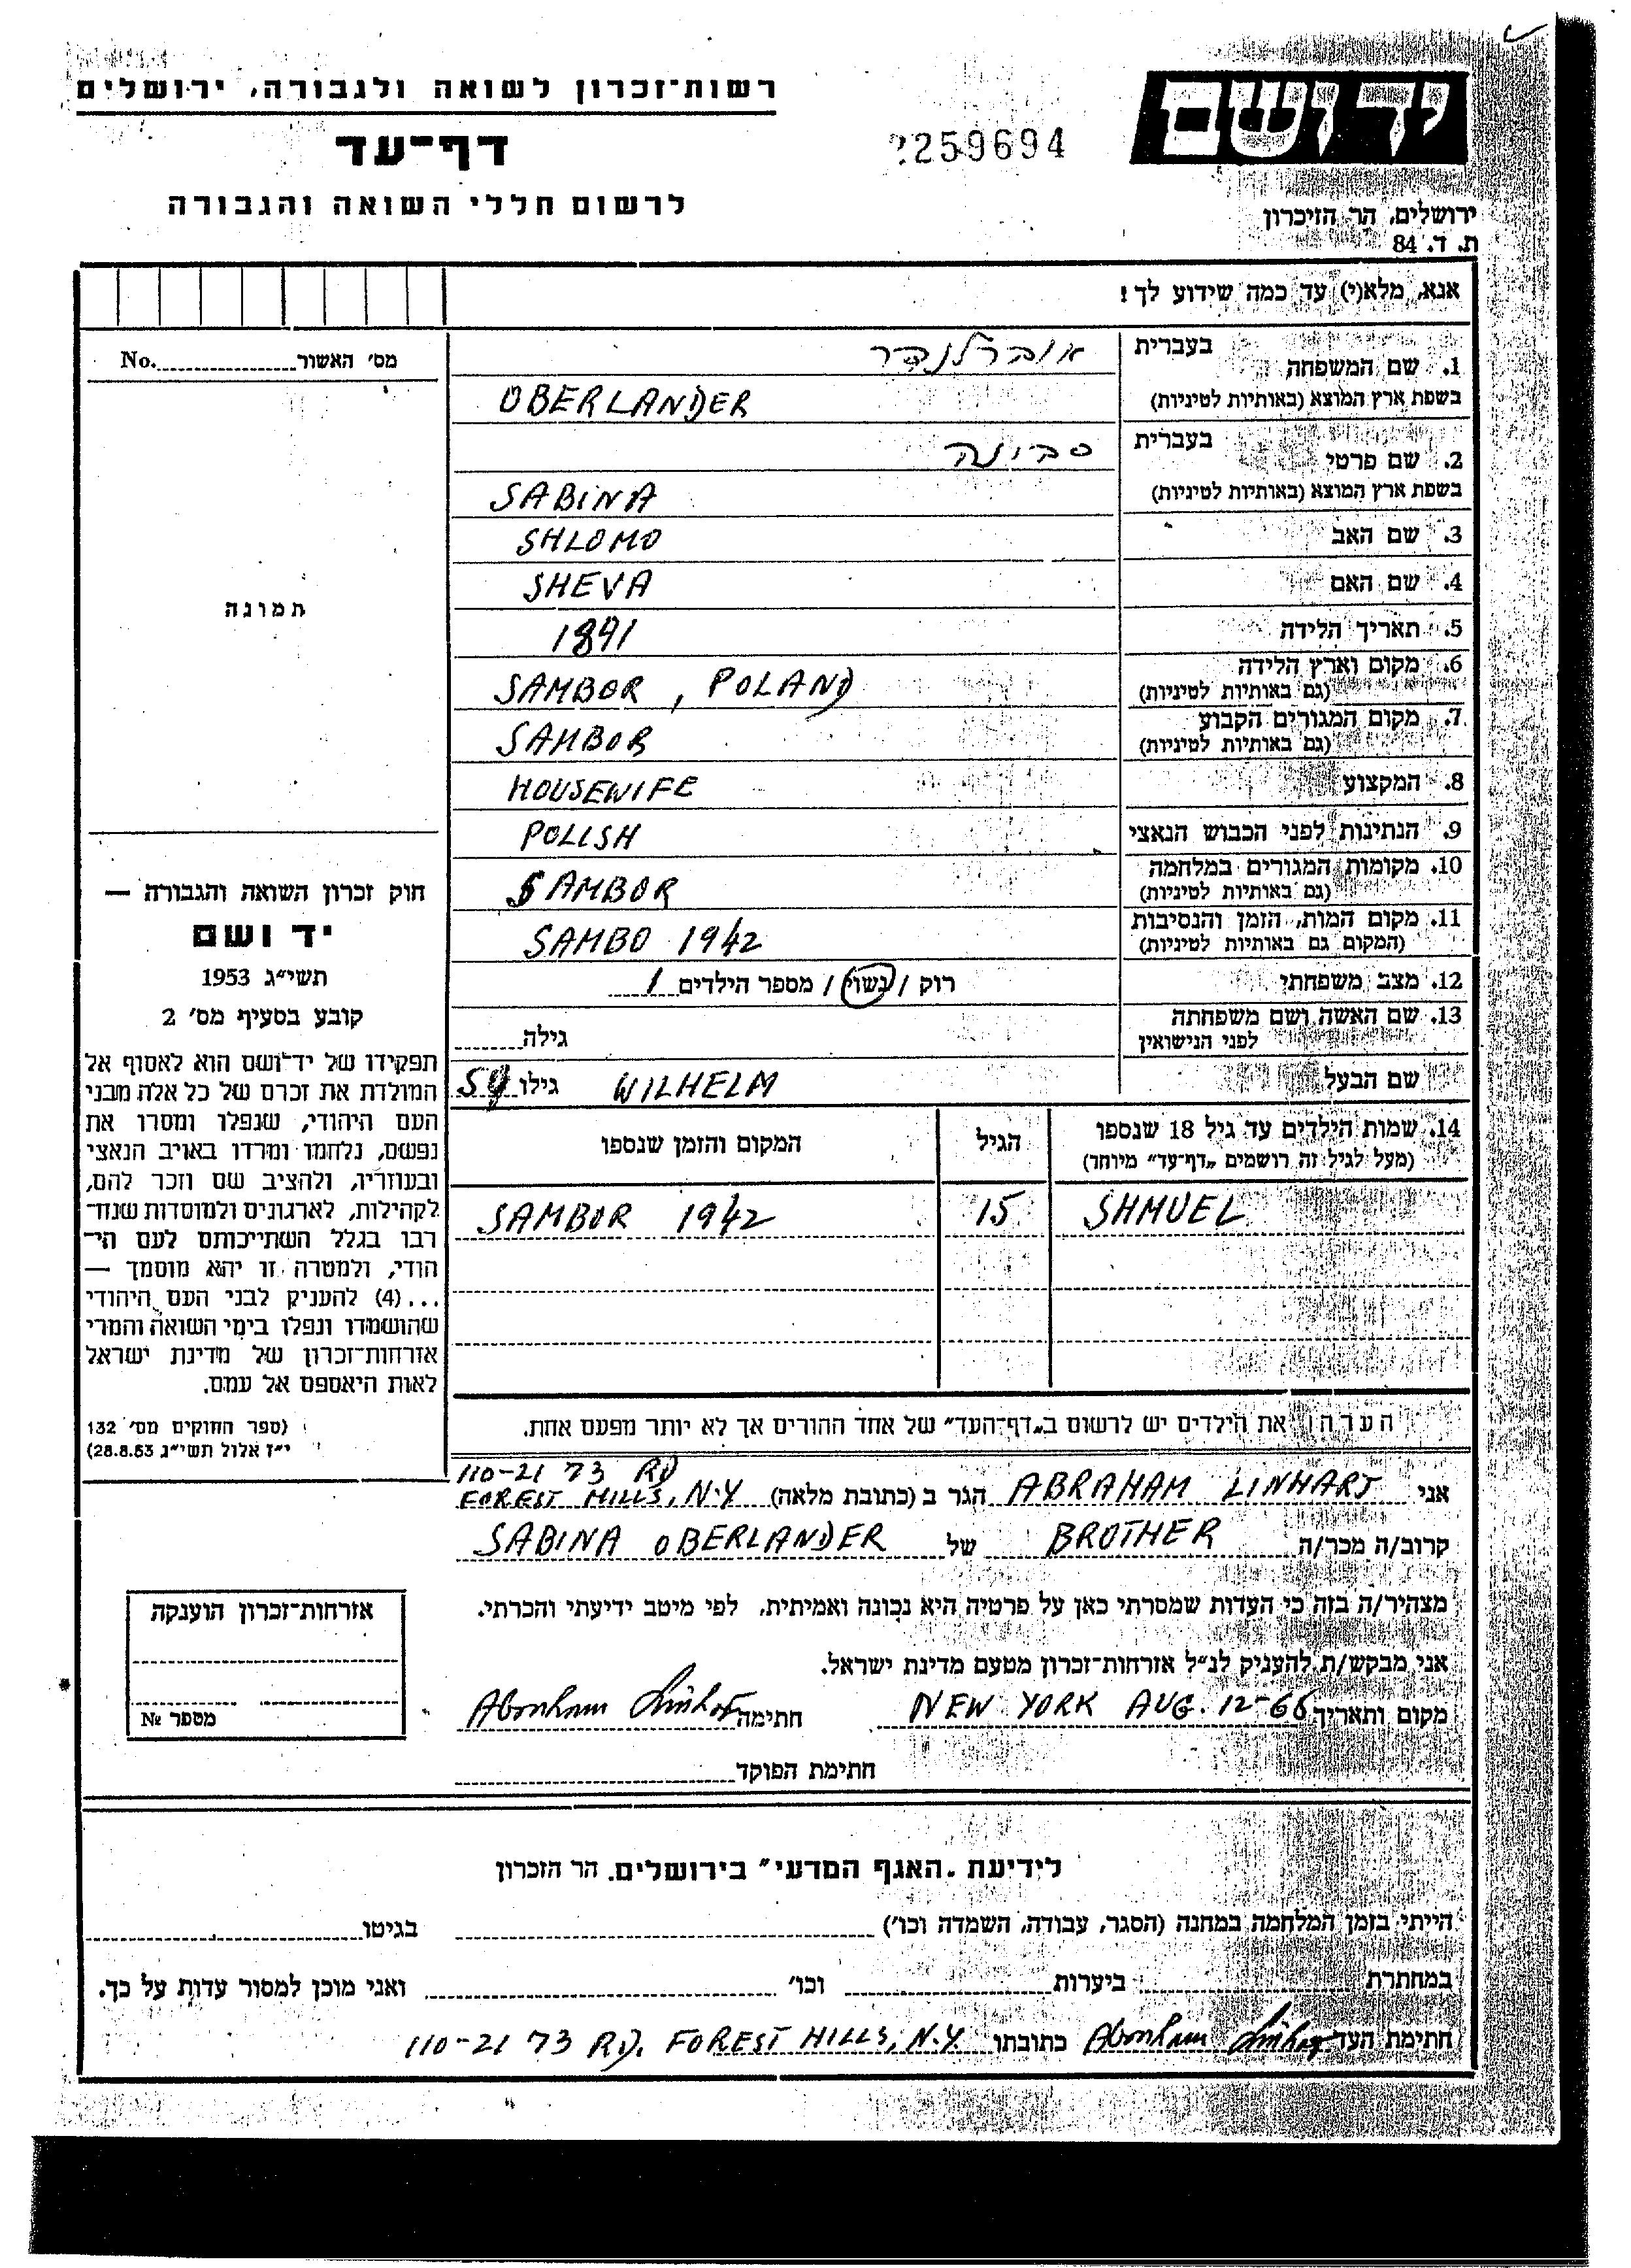 יד ושם
ירושלים, הר הזיכרון
ת. ד. 84
רשות־זכרון לשואה ולגבורה, ירושלים
דף־עד
לרשום חללי השואה והגבורה
259694
אנא, מלא(י) עד כמה שידוע לך!
מס' האשור No.
תמונה
1. שם המשפחה בעברית אוברלנדר
בשפת ארץ המוצא (באותיות לטיניות) OBERLANDER
2. שם פרטי בעברית סבינה
בשפת ארץ המוצא (באותיות לטיניות) SABINA
3. שם האב SHLOMO
4. שם האם SHEVA
5. תאריך הלידה 1891
6. מקום וארץ הלידה
(גם באותיות לטיניות) SAMBOR, POLAND
7. מקום המגורים הקבוע
(גם באותיות לטיניות) SAMBOR
8. המקצוע HOUSEWIFE
9. הנתינות לפני הכבוש הנאצי POLISH
10. מקומות המגורים במלחמה
(גם באותיות לטיניות) SAMBOR
11. מקום המות, הזמן והנסיבות
(המקום גם באותיות לטיניות) SAMBO 1942
12. מצב משפחתי רוק / נשוי / מספר הילדים 1
13. שם האשה ושם משפחתה
לפני הנישואין גילה
שם הבעל WILHELM גילו
14. שמות הילדים עד גיל 18 שנספו הגיל המקום והזמן שנספו
(מעל לגיל זה רושמים "דף־עד" מיוחד)
SHMUEL 15 SAMBOR 1942
הערה: את הילדים יש לרשום ב"דף־העד" של אחד ההורים אך לא יותר מפעם אחת.
חוק זכרון השואה והגבורה —
יד ושם
תשי"ג 1953
קובע בסעיף מס' 2
תפקידו של יד־ושם הוא לאסוף אל
המולדת את זכרם של כל אלה מבני
העם היהודי, שנפלו ומסרו את
נפשם, נלחמו ומרדו באויב הנאצי
ובעוזריו, ולהציב שם וזכר להם,
לקהילות, לארגונים ולמוסדות שנח־
רבו בגלל השתייכותם לעם הי־
הודי, ולמטרה זו יהא מוסמך —
...(4) להעניק לבני העם היהודי
שהושמדו ונפלו בימי השואה והמרי
אזרחות־זכרון של מדינת ישראל
לאות היאספם אל עמם.
(ספר החוקים מס' 132
י"ז אלול תשי"ג 28.8.53)
110-21 73 RD
אני ABRAHAM LINHART הגר ב (כתובת מלאה) FOREST HILLS, N.Y
קרוב/ה מכר/ה BROTHER של SABINA OBERLANDER
מצהיר/ה בזה כי העדות שמסרתי כאן על פרטיה היא נכונה ואמיתית, לפי מיטב ידיעתי והכרתי.
אני מבקש/ת להעניק לנ"ל אזרחות־זכרון מטעם מדינת ישראל.
מקום ותאריך NEW YORK AUG. 12-66 חתימה Abraham Linhart
חתימת הפוקד
אזרחות־זכרון הוענקה
מספר №
לידיעת "האגף המדעי" בירושלים, הר הזכרון
הייתי בזמן המלחמה במחנה (הסגר, עבודה, השמדה וכו') בגיטו
במחתרת ביערות וכו' ואני מוכן למסור עדות על כך.
חתימת העד Abraham Linhart כתובתו 110-21 73 RD, FOREST HILLS, N.Y.